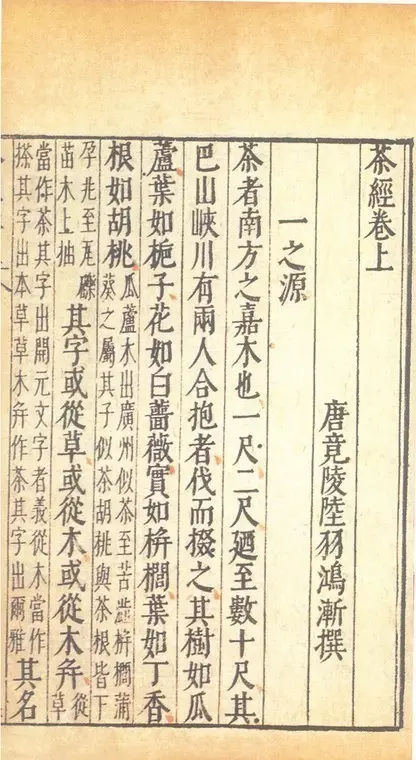 茶經卷上
唐竟陵陸羽鴻漸撰
一之源
茶者南方之嘉木也一尺二尺廼至數十尺其
巴山峽川有兩人合抱者伐而掇之其樹如瓜
蘆葉如梔子花如白薔薇實如栟櫚葉如丁香
根如胡桃瓜蘆木出廣州似茶至苦澁栟櫚蒲
葵之屬其子似茶胡桃與茶根皆下
孕兆至瓦礫
苗木上抽其字或從草或從木或從木并從
草
當作茶其字出開元文字者義從木當作
搽其字出本草草木并作茶其字出爾雅其名